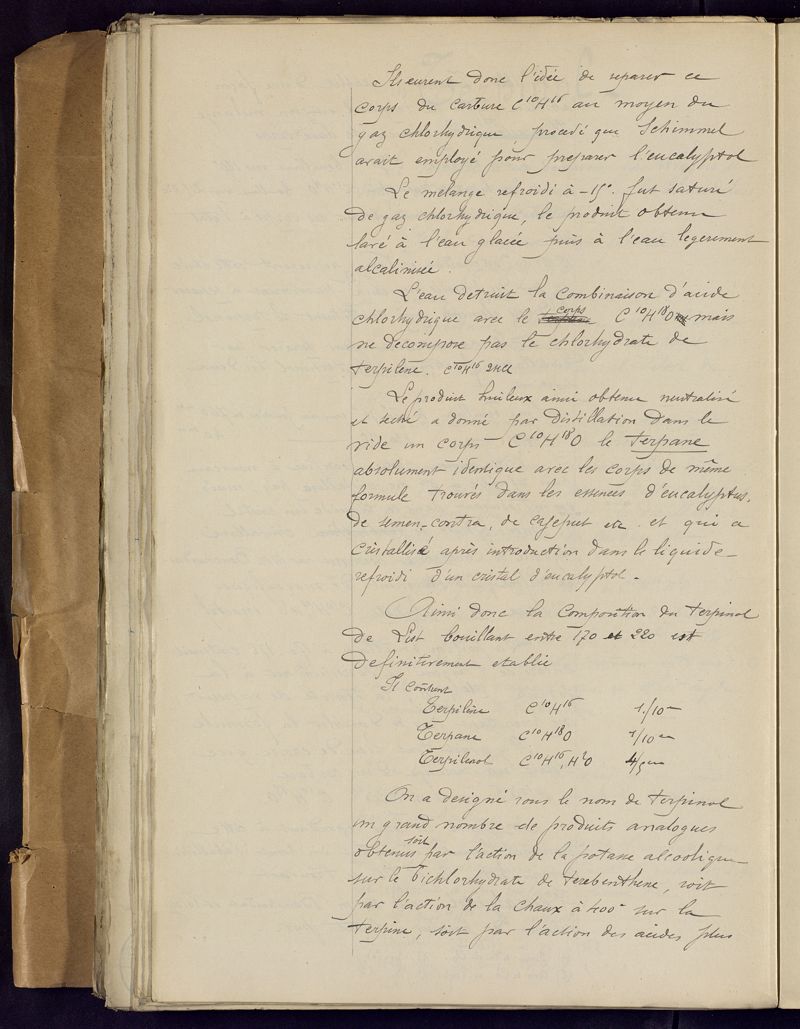 Ils eurent donc l'idée de separer ce
corps du carbure C¹⁰H¹⁶ au moyen du
gaz chlorhydrique, procedé que Schimmel
avait employé pour preparer l'eucalyptol
Le mélange refroidi à -15°. fut saturé
de gaz chlorhydrique, le produit obtenu
lavé à l'eau glacée puis à l'eau legerement
alcalinisée.
L'eau detruit la combinaison d'acide
chlorhydrique avec le corps C¹⁰H¹⁸O mais
ne decompose pas le chlorhydrate de
terpilène. C¹⁰H¹⁶ 2HCl
Le produit huileux ainsi obtenu neutralisé
et seché a donné par distillation dans le
vide un corps C¹⁰H¹⁸O le terpane
absolument identique avec les corps de même
formule trouvés dans les essences d'eucalyptus,
de semen-contra, de cajeput etc. et qui a
cristallisé après introduction dans le liquide
refroidi d'un cristal d'eucalyptol.
Ainsi donc la composition du terpinol
de List bouillant entre 170 et 220 est
definitivement etablie
Il contient
Terpilène C¹⁰H¹⁶ 1/10
Terpane C¹⁰H¹⁸O 1/10
Terpilenol C¹⁰H¹⁶,H²O 4/5
On a designé sous le nom de terpinol
un grand nombre de produits analogues
obtenus soit par l'action de la potasse alcoolique
sur le bichlorhydrate de terebenthene, soit
par l'action de la chaux à 400° sur la
terpine, soit par l'action des acides plus